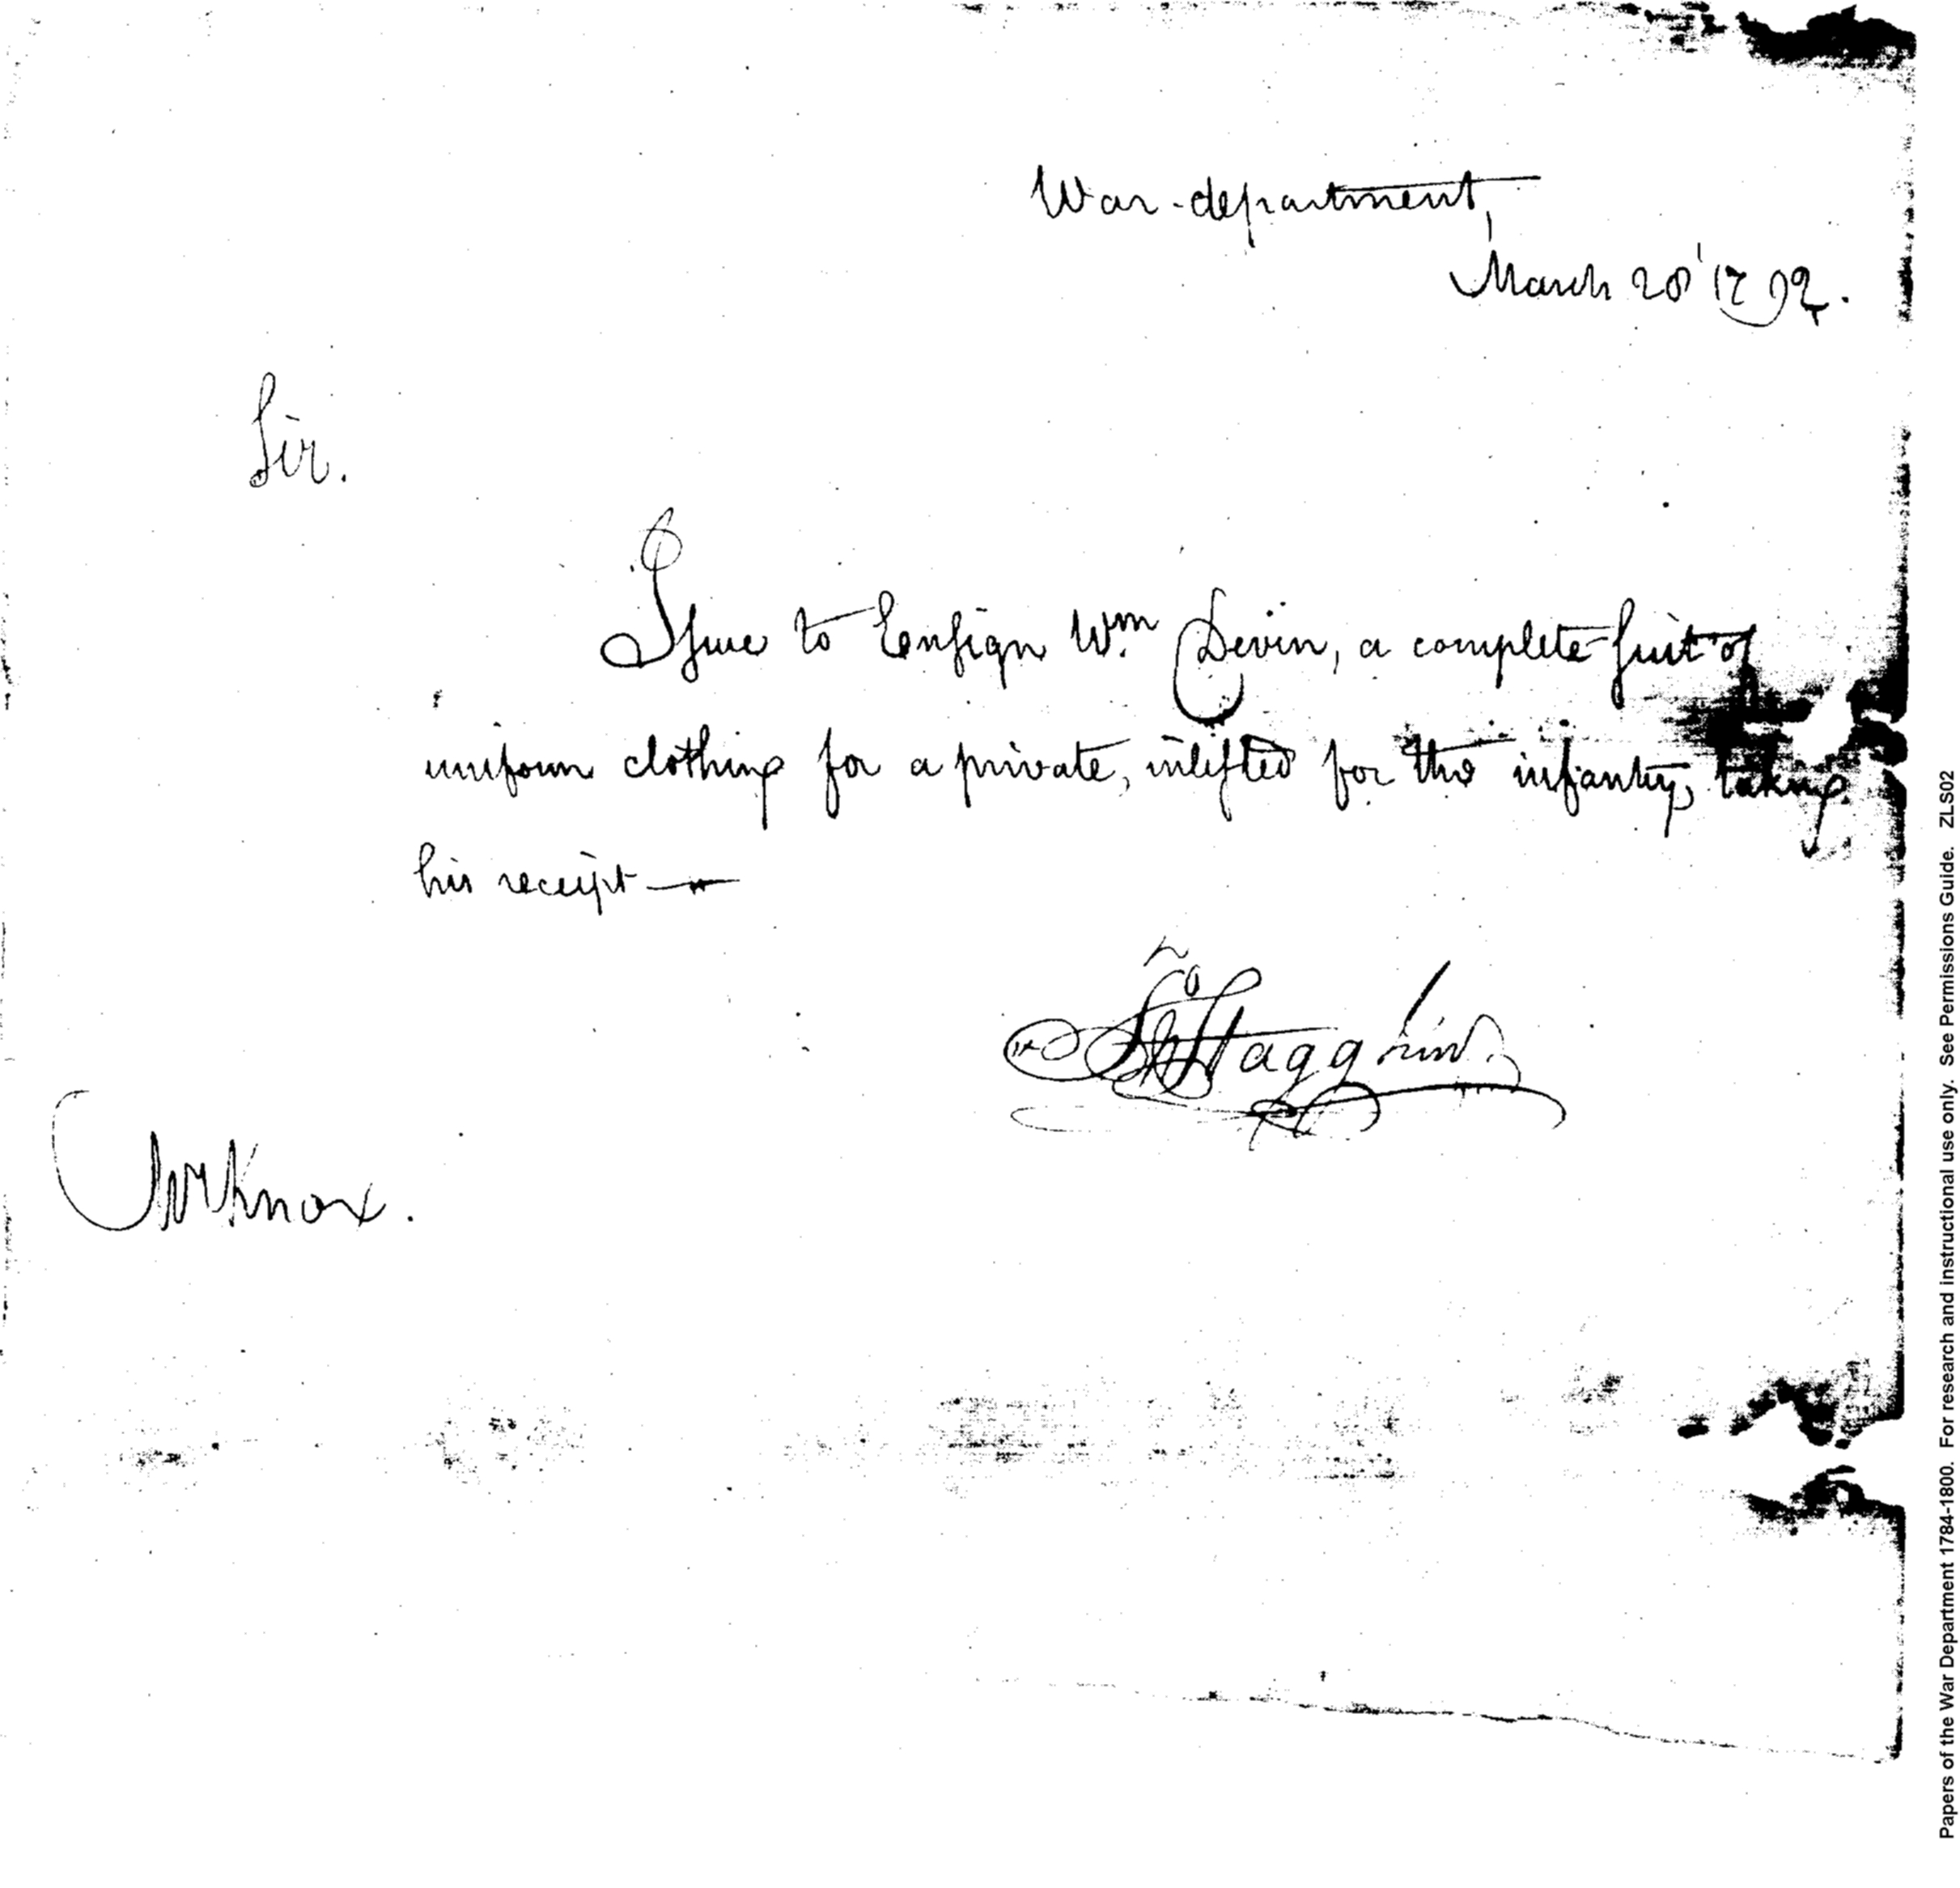 War-department,
March 28 1792.
Sir.
Issue to Ensign Wm. Devin, a complete suit of
uniform clothing for a private, inlisted for the infantry, taking
his receipt —
Jno Stagg Jun.
Mr Knox.
Papers of the War Department 1784-1800. For research and instructional use only. See Permissions Guide. ZLS02